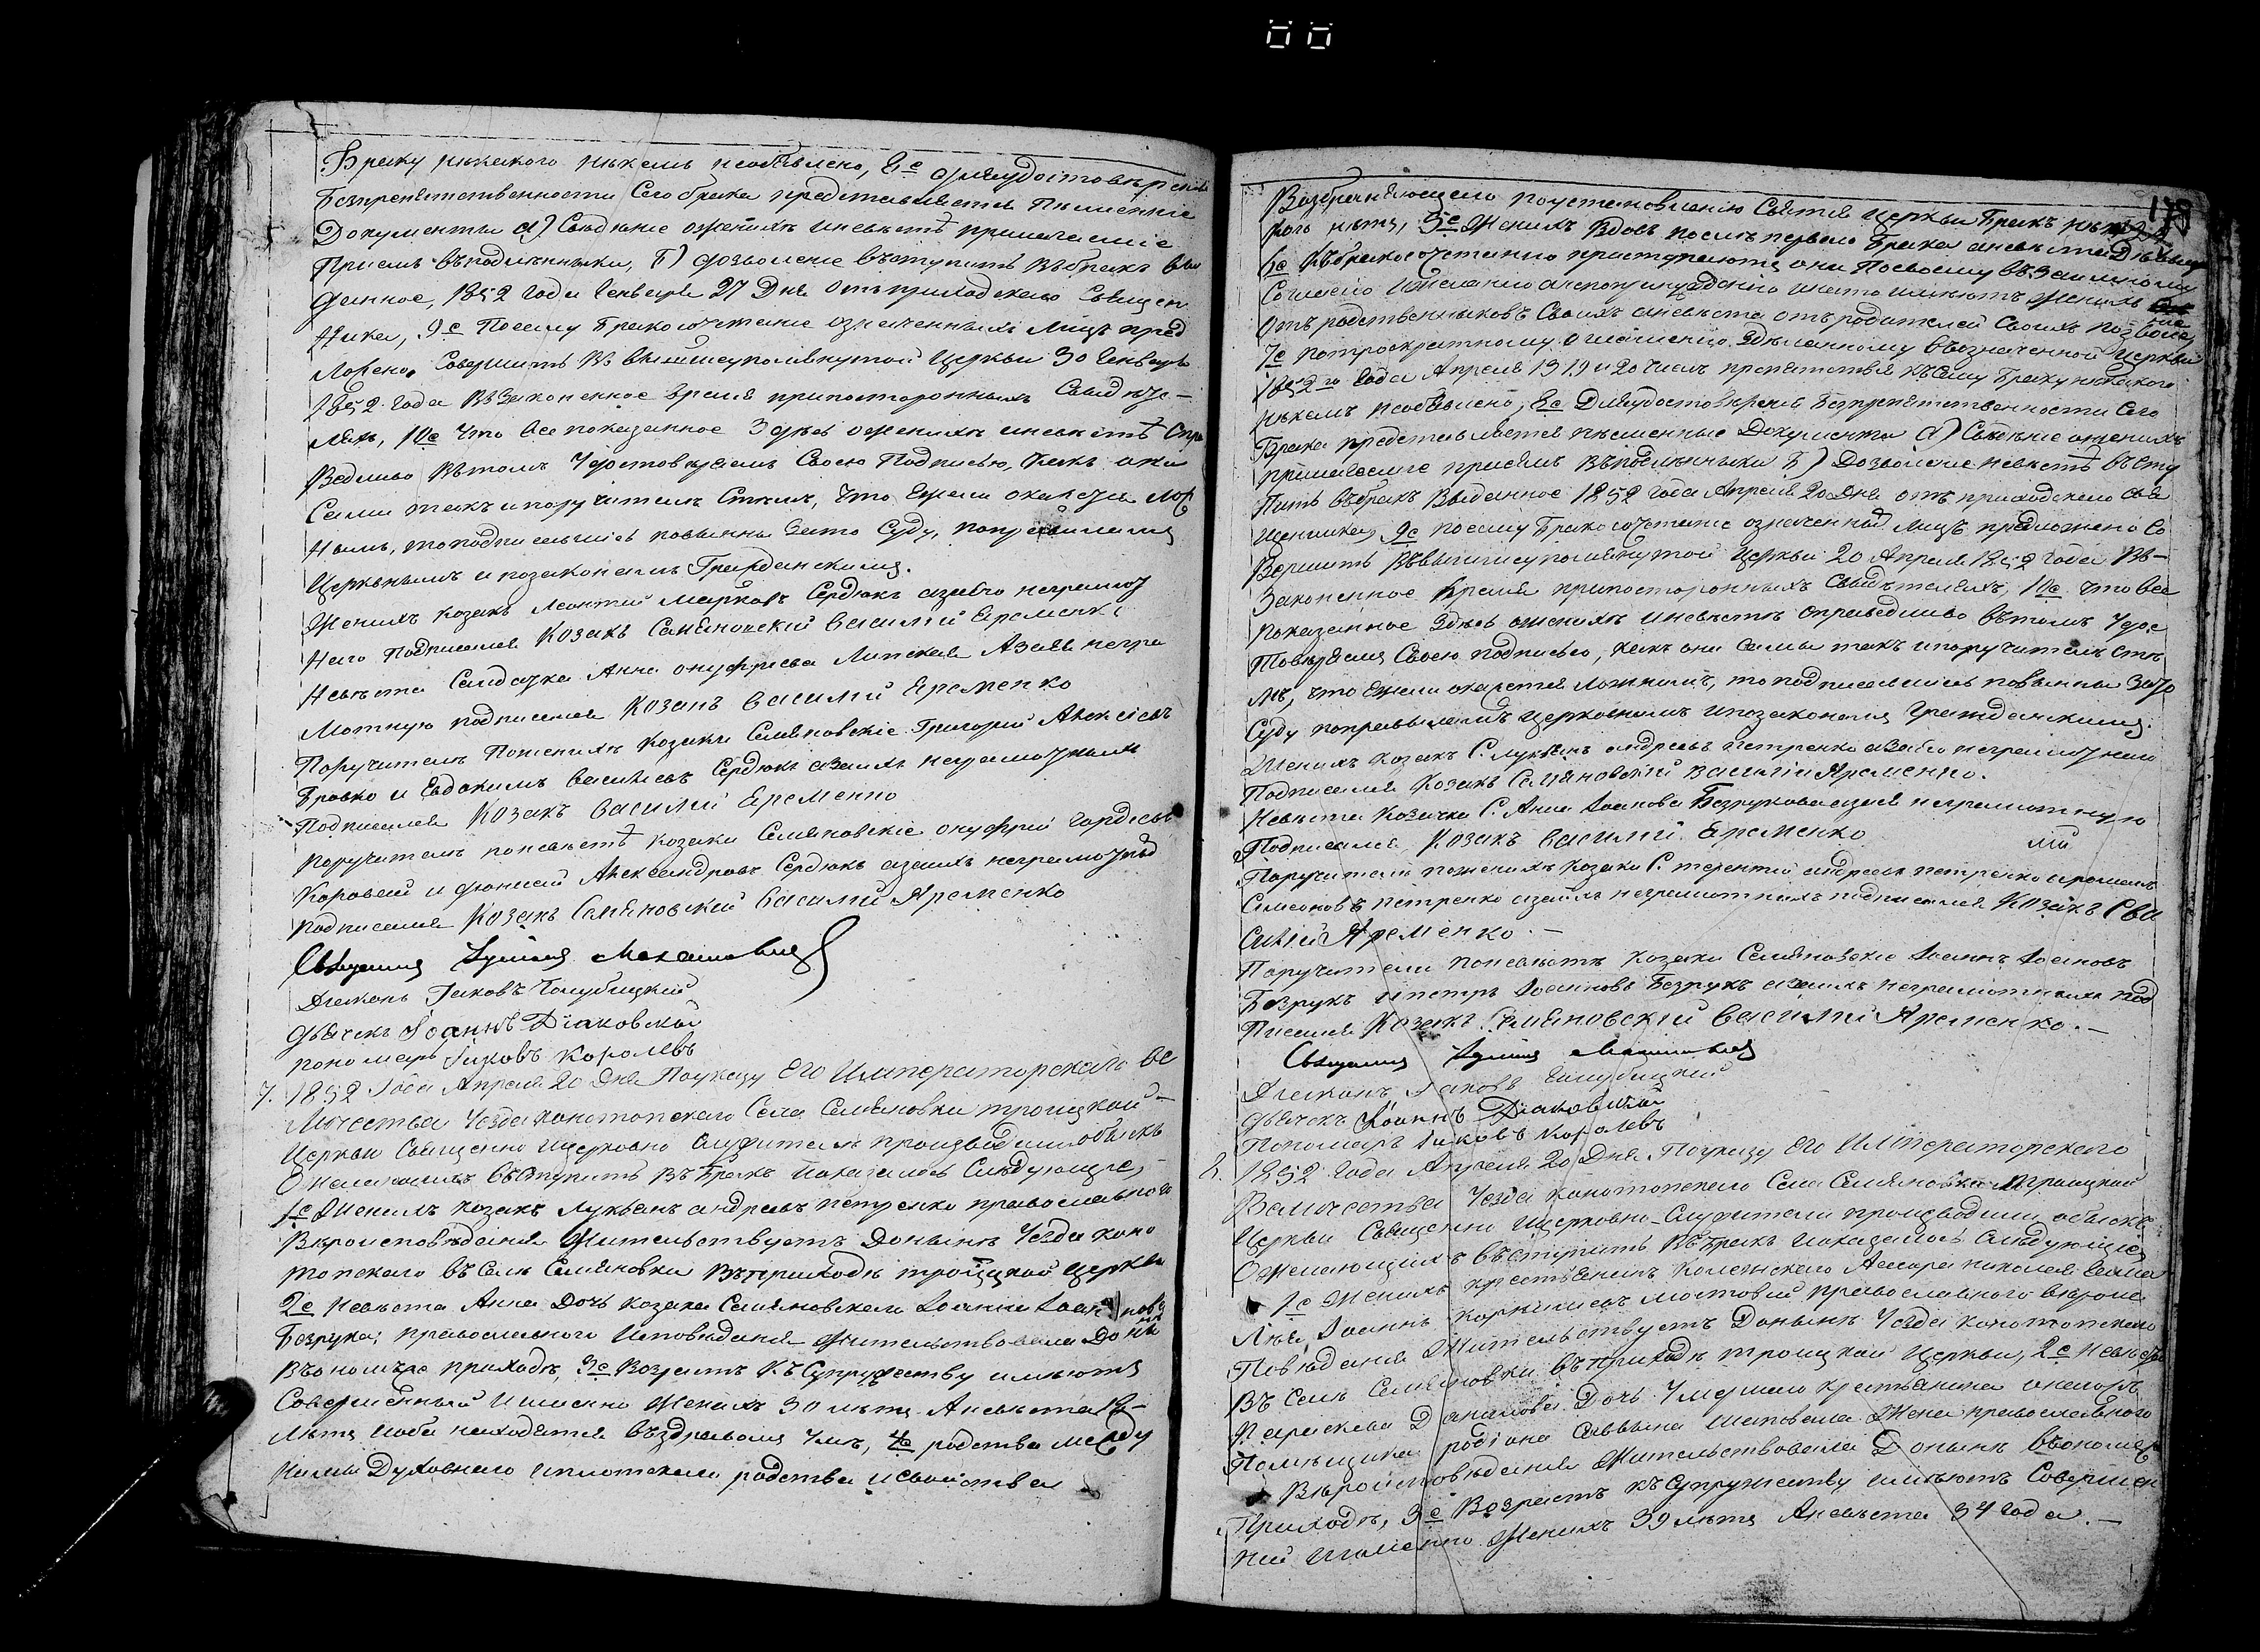 Браку никакого никемъ необъявлено, 8е Дляудостовѣренія
Безпрепятственности Сего брака представляется Писменніе
Документы а) Свѣденіе оженихѣ иневѣстѣ прилагаеміе
Приемъ въподлѣнныки, б) дозволеніе въступить въбракъ вы
данное, 1852 года Генваря 27 Дня отъприходскаго Священ
Ника, 9е Посему Бракосочетаніе означенныхъ лицъ пред
ложено Совершить въ вышшеупомянутой Церквы 30 Генваря
1852 года въЗаконенное время припостороннихъ Свидѣте-
ляхъ, 10е Что все показанное Здѣсь оженихѣ иневѣстѣ спра
ведливо вѣтомъ Удостовѣряемъ Своею Подписью, какъ они
Сами такъ ипоручители Стѣмъ, что Ежели окажется лож
нымъ, топодписавшись повынны зато Суду, поправиламъ
Церквнымъ ипозаконамъ Гражданскимъ.
Женихъ козакъ Леонтій Марковъ Сердюкъ азаего неграмот
наго Подписался Козакъ Семяновскій Василий Еременко
Невѣста Салдатка Анна онуфріева Липская Азаяе негра
мотную подписался Козакъ Василий Еременко
Поручители Поженихѣ козаки Семяновскіе Григорій Алексіевъ
Бровко и Евдокимъ Васильевъ Сердюкъ азаихъ неграмотныхъ
Подписался Козакъ Василий Еременко
поручители поневѣстѣ козаки Семяновскіе онуфрій Гордіевъ
Коровай и Фионисій Александровъ Сердюкъ азаихъ неграмотныхъ
подписался Козакъ Семяновскій Василий Яременко
Священникъ
Діаконъ Іаковъ Голубицкий
дьячекъ Іоаннъ Діаковский
пономарь Іаковъ Королевъ
7. 1852 Года Апреля 20 Дня Поуказу Его Императорскаго Ве
личества Уезда конотопскаго Села Семяновки троицкой
Церквы Священно ицерковно Служители произвели обыскъ
ожелающихъ въступить въ Бракъ иоказалось Слѣдующее,
1е Женихъ козакъ Лукьянъ андреевъ петренко православнаго
вѣроисповѣданія Жительствуетъ Донынѣ Уезда коно
топскаго въ Селѣ Семяновки въприходѣ троицкой церквы
2е Невѣста Анна Дочь козака Семяновскаго Іоанна Іоаннова
Безрука, православного Исповѣданія Жительствовала Донынѣ
въономъже приходѣ, 3е Возрастъ къ Супружеству имѣютъ
Совершенный Именно Женихъ 30 лѣтъ Аневѣста 18-
лѣтъ иоба находятся въздравомъ Умѣ, 4е родства между
ними Духовнаго иплотскаго родства и свойства
178
Возбраняющаго поустановленію Святія церквы Бракъ никако
рого нѣтъ, 5е Женихъ Вдовъ послѣ первого Брака аневѣста Дѣвица
6е Къбракосочетанію приступаютъ они Посвоему въЗаимному
Согласію ижеланію анепопринуждѣнію инато имѣютъ Женихъ
отъ родственныковъ Своихъ аневѣста отъродителей Своихъ позволе
ніе
7е потроекратному оглашенію Здѣланному въозначенной церквы
1852го Года Апреля 13 19 и 20 чиселъ препятствія къСему Браку никакого
никемъ необъявлено, 8е Дляудостовѣренія Безпрепятственности Сего
Брака представляется писменные Документы а) Свѣденіе оженихѣ
прилагаеміе приемъ въподлѣнныки б) Дозволеніе невѣстѣ въсту
пить въбракъ выданное 1852 года Апреля 20 Дня отъ приходскаго Свя
щенника, 9е посему Бракосочетаніе означенныхъ Лицъ предложено Со
вершить въвышшеупомянутой Церквы 20 Апреля 1852 года въ-
Законенное время припостороннихъ Свидѣтеляхъ, 10е Что все
показанное Здѣсь оженихѣ иневѣстѣ справедливо вѣтомъ Удос
товѣряемъ Своею подписью, какъ они Самы такъ ипоручители стѣ
мъ, что Ежели окажется ложнымъ, то подписавшись повынны зато
Суду поправиламъ церковнымъ ипозаконамъ Гражданскимъ.
Женихъ Козакъ С. Лукьянъ андреевъ петренко азаего неграмотнаго
Подписался Козакъ Семяновский Василий Яременко.
Невѣста Козачка С. Анна Іоанова Безрукова азаея неграмотную
Подписался, Козакъ Василий Еременко
Поручители поженихѣ козаки С. терентій андреевъ петренко
Симеоновъ петренко азаихъ неграмотнихъ подписался Козакъ С Ва
силий Яременко.-
Поручители поневѣстѣ козаки Семяновскіе Іоаннъ Іоановъ
Безрукъ ипетръ Іоанновъ Безрукъ азаихъ неграмотнихъ под
писался Козакъ Семяновский Василий Яременко.-
Священникъ
Діаконъ Іаковъ Голубицкий
дьячекъ Іоаннъ Діаковский
Пономарь Іаковъ Королевъ
8. 1852 Года Апреля 20 Дня Поуказу Его Императорского
Величества Уезда конотопскаго Села Семяновки троицкой
Церквы Священно ицерковно-Служители производили обыскъ
ожелающихъ въступить въБракъ иоказалось Слѣдующее
1е Женихъ крестьянинъ Колежскаго Асесора николая
Іоаннъ Корнилиевъ Мостовий православного вѣроис
повѣданія Жительствуетъ Донынѣ Уезда конотопскаго
въ Селѣ Семяновки въприходѣ троицкой Церквы, 2е Невѣста
Параскева Данилова Дочь Умершаго крестьянина
Помѣщика родіона Жена православного
вѣроисповѣданія Жительствовала Донынѣ въономъже
Приходѣ, 3е Возрастъ къСупружеству имѣютъ Совершен
ний Именно Женихъ 39 лѣтъ Аневѣста 34 года.-